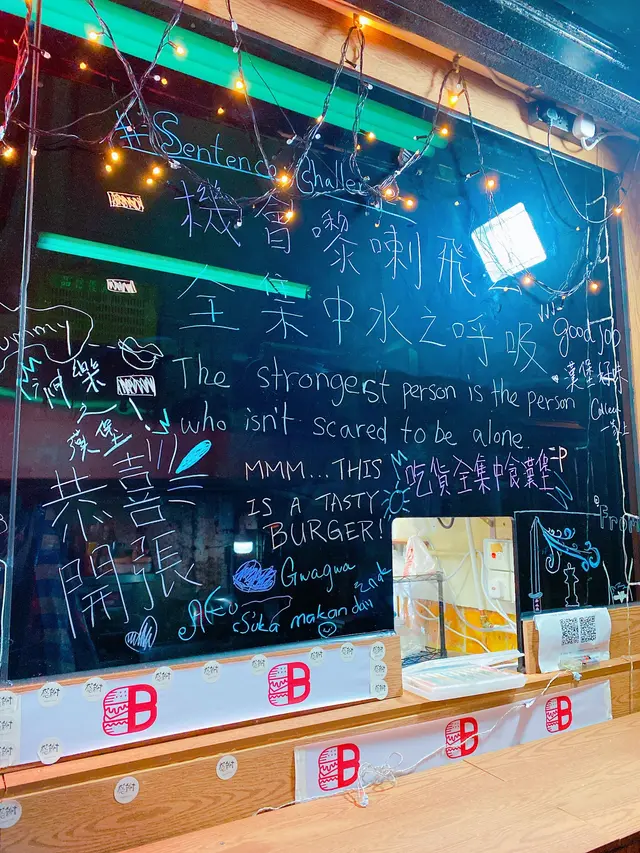 Sentence Challe
機會嚟喇飛
全集中水之呼吸
The strongest person is the person
who isn't scared to be alone.
good job
漢堡
Collect
yummy
漢堡!
恭喜
開張
MMM...THIS
IS A TASTY
BURGER!
吃貨全集中食漢堡
From
Gwagwa
Suka makan
B
B
B
B
B